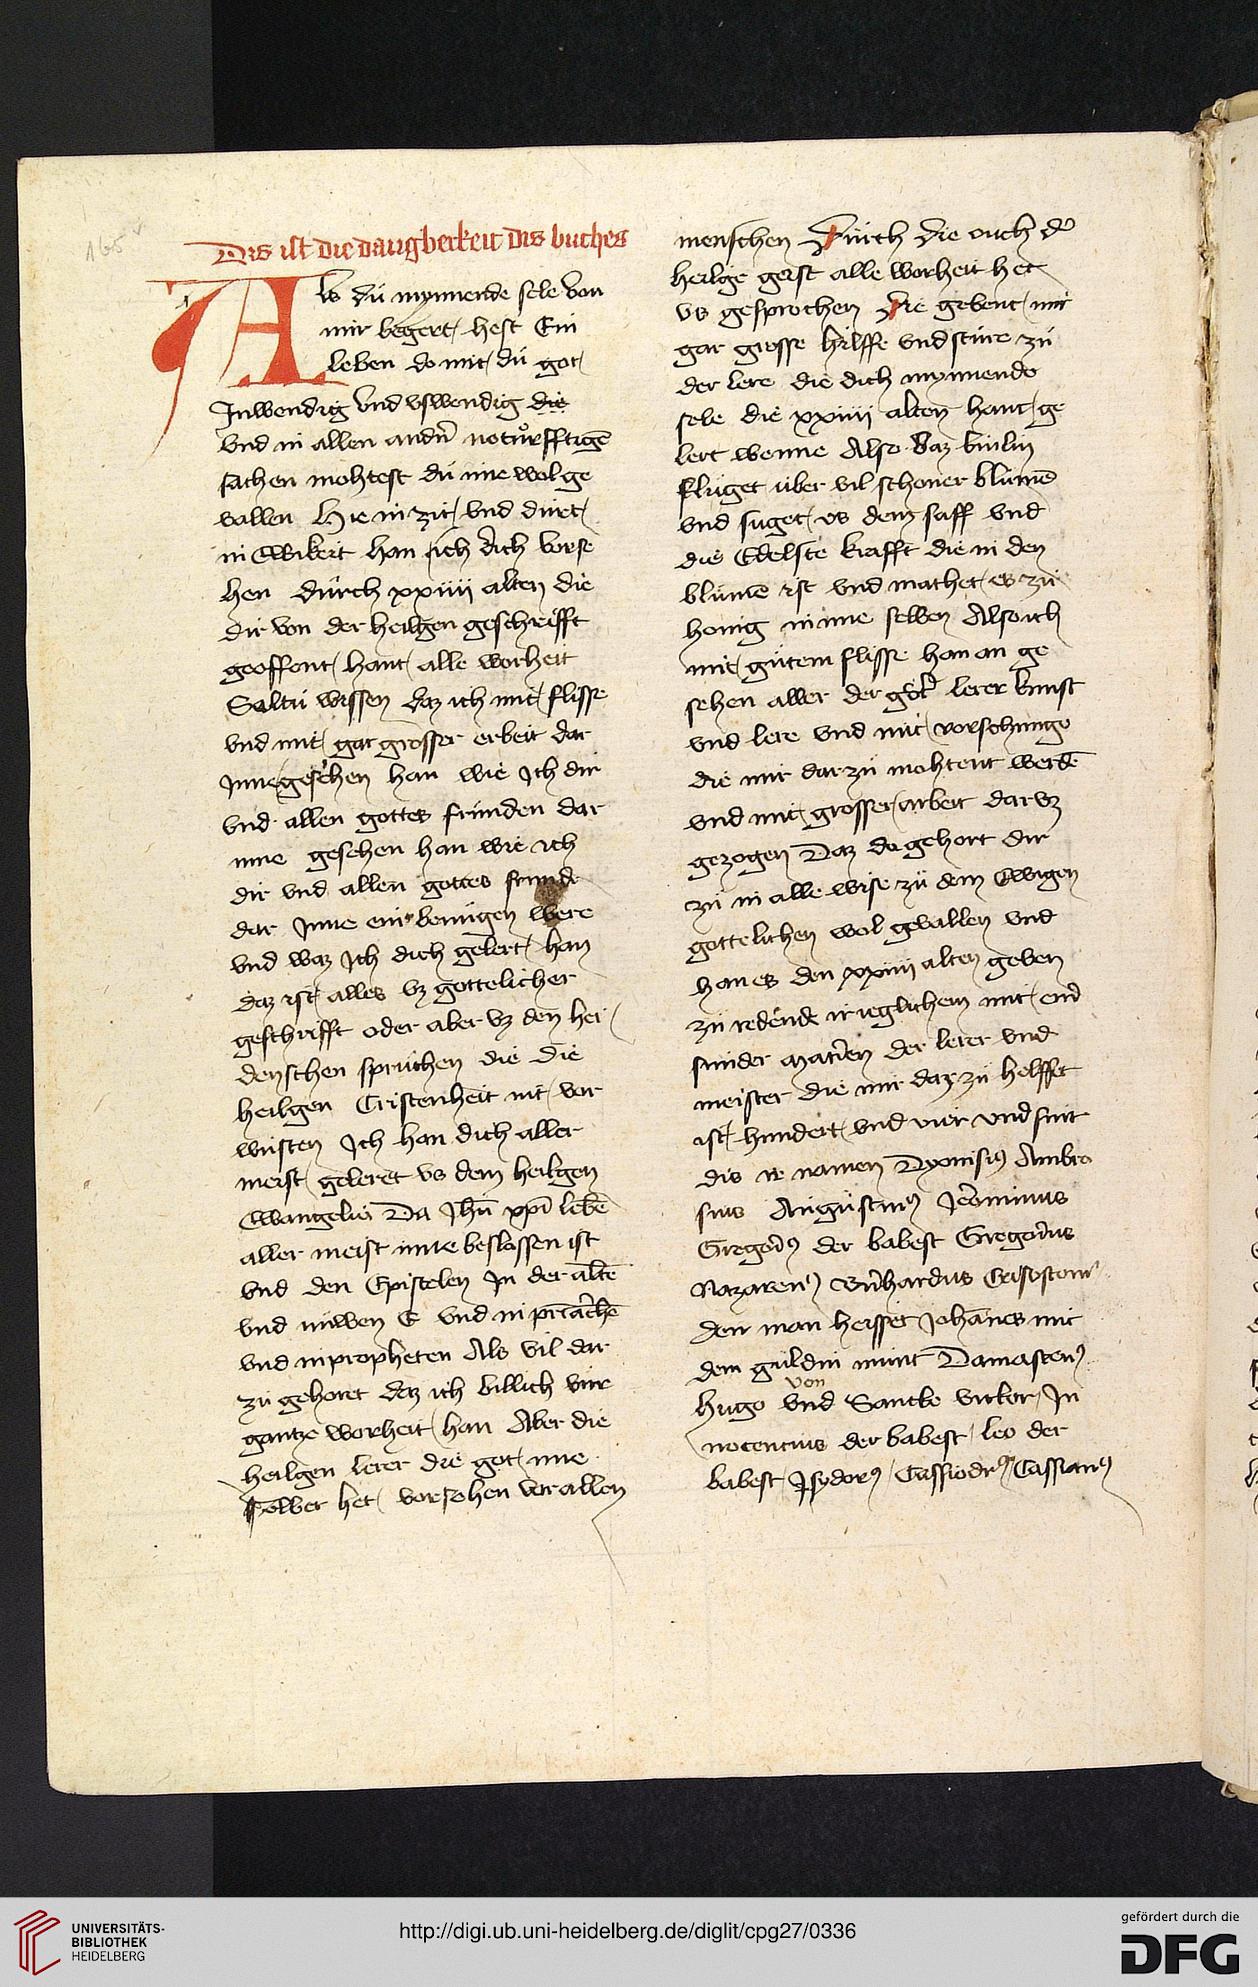 165v
Dis ist die dangberkeit dis buches
Als dü mynnende sele von
mir begert hest Ein
leben do mit dü got
Inwendig vnd vswendig die
vnd in allen andn̄ notůrfftigē
sachen mohtest dü ime wol ge
vallen Hie in zit vnd dürt
in Ewikeit han ich dich vorse
hen dürch xxiiii alten die
dir von der heilgen geschrifft
geoffent hant alle worheit
Soltü wissen daz ich mit flisse
vnd mit gar grosser erbeit dar
Inne gesehen han wie Ich dir
vnd allen gottes frunden dar
inne gesehen han wie ich
dir vnd allen gottes frunde
dar Inne ein benügen were
vnd waz Ich dich gelert han
daz ist alles vz gottelicher
geschrifft oder aber vz den hei
denschen sprüchen die die
heilgen Cristenheit nit ver
wüsten Ich han dich aller
meist geleret vs dem heilgen
Ewangelio Da Jhū xp̄i lebē
aller meist inne beslossen ist
vnd den Epistelen In der altē
vnd nüwen E vnd in
vnd in propheten Als vil dar
zü gehoret daz ich billich vür
gantze worheit han Aber die
heilgen lerer die got ime
selber het vorsehen vor allen
menschen Dürch die ouch d'
heilge geist alle worheit het
vs gesprochen Die gebent mir
gar grosse hilffe vnd stüre zü
der lere die dich mynnende
sele die xxiiii alten hant ge
lert wenne Also daz binlin
flüget über vil schoner blümē
vnd suget vs dem saff vnd
die Edelste krafft die in den
blümē ist vnd machet es zü
honig in ime selben Also ich
mit gütem flisse han an ge
sehen aller der lerer kunst
vnd lere vnd mit vorschunge
die mir dar zü mohtent werdē
vnd mit grosser arbeit dar vz
gezogen Daz do gehort dir
zü in alle wise zü dem Ewigen
gottelichen wol gevallen vnd
han es den xxiiii alten geben
zü redende ir ieglichem mit
sunder der lerer vnd
meister die mir dar zü helffet
ist hundert vnd vier vnd sint
dis ir namen Dyonisiꝰ Ambro
sius Augustinꝰ Jeronimus
Gregoriꝰ der babest Gregorius
Nazarenꝰ Bernhardus Crisostom'
den man heisset Johānes mit
dem güldin munt Damascenꝰ
Hugo vnd von Sancte victor In
nocencius der babest leo der
babest Isydorꝰ Cassiodrꝰ Cassianꝰ
UNIVERSITÄTS-
BIBLIOTHEK
HEIDELBERG
http://digi.ub.uni-heidelberg.de/diglit/cpg27/0336
gefördert durch die
DFG